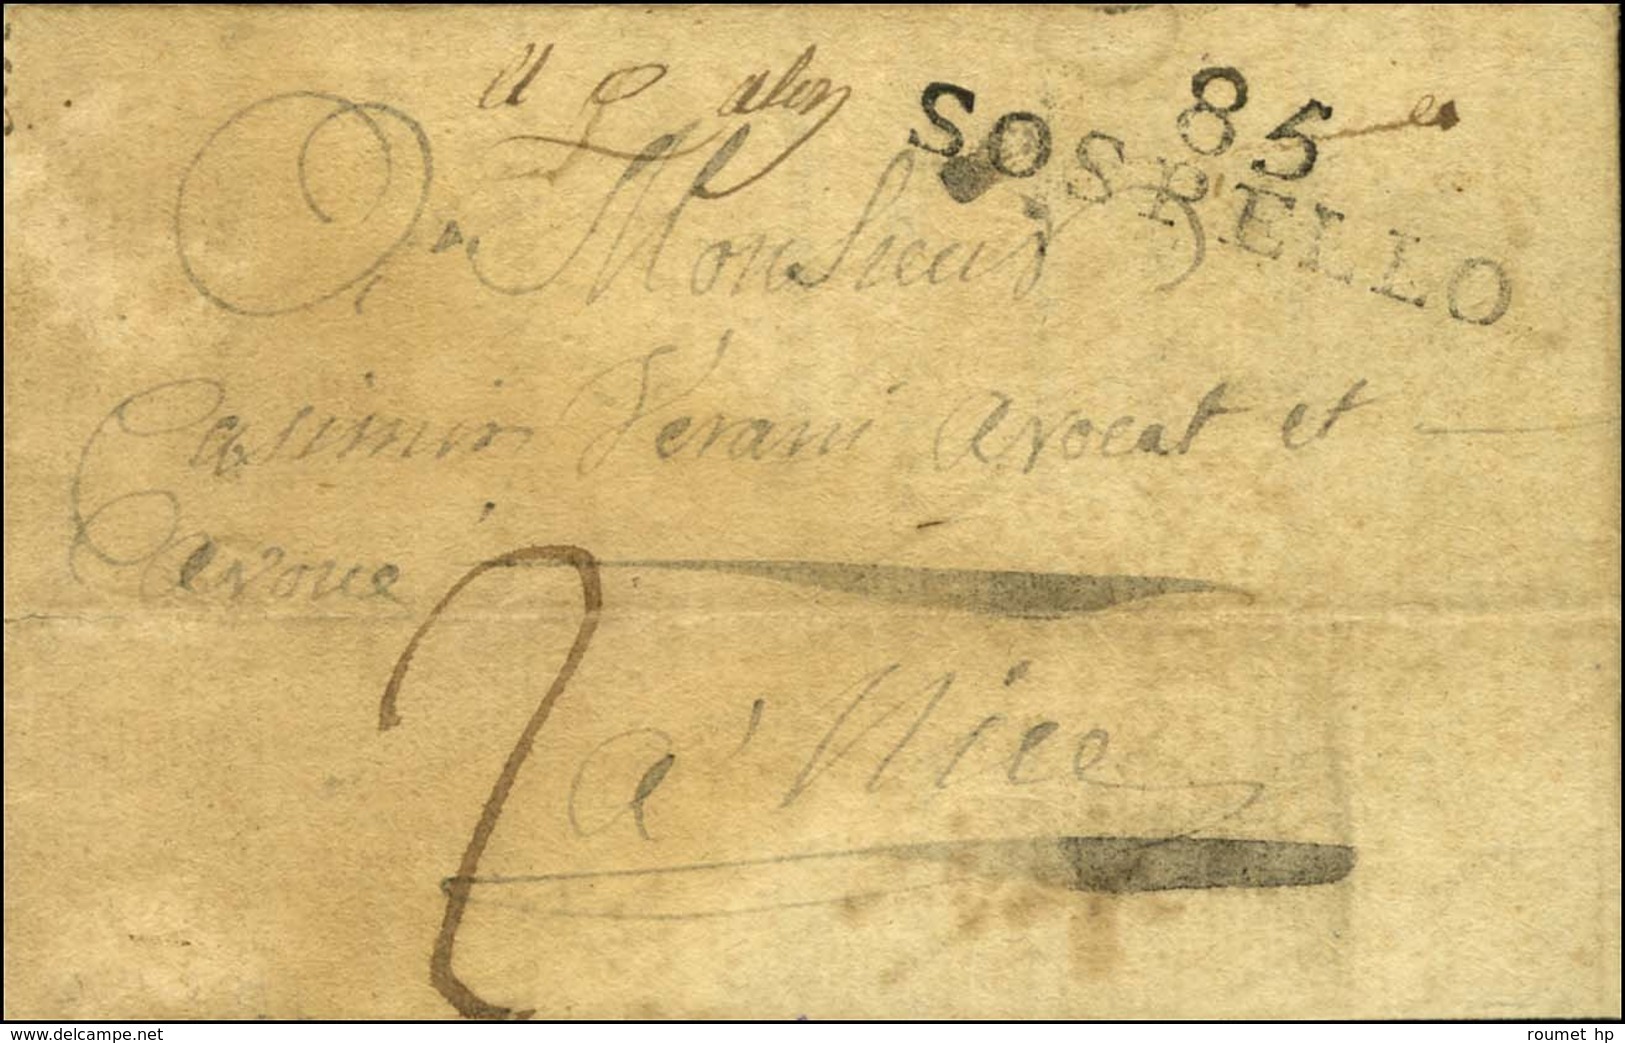 85
SOSPELLO
A Monsieur
Casimir Verani avocat et
avoue
2
a' Nice
delcampe.net
roumet hp